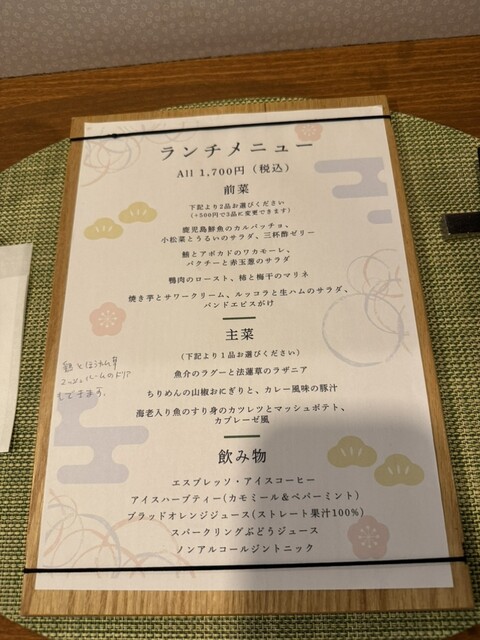 ランチメニュー
All 1,700円（税込）
前菜
下記より2品お選びください
(+500円で3品に変更できます)
鹿児島鮮魚のカルパッチョ、
小松菜とうるいのサラダ、三杯酢ゼリー
鮪とアボカドのワカモーレ、
パクチーと赤玉葱のサラダ
鴨肉のロースト、柿と梅干のマリネ
焼き芋とサワークリーム、ルッコラと生ハムのサラダ、
パンドエピスがけ
主菜
(下記より１品お選びください)
魚介のラグーと法蓮草のラザニア
ちりめんの山椒おにぎりと、カレー風味の豚汁
海老入り魚のすり身のカツレツとマッシュポテト、
カプレーゼ風
鶏とほうれん草
マッシュルームのドリア
もできます。
飲み物
エスプレッソ・アイスコーヒー
アイスハーブティー(カモミール＆ペパーミント)
ブラッドオレンジジュース(ストレート果汁100%)
スパークリングぶどうジュース
ノンアルコールジントニック